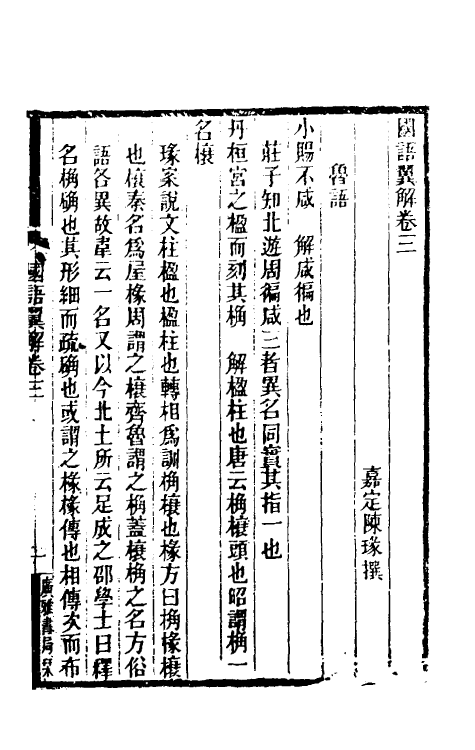 國語翼解卷三
嘉定陳瑑撰
魯語
小賜不咸　解咸徧也
莊子知北遊周徧咸三者異名同實其指一也
丹桓宮之楹而刻其桷　解楹柱也唐云桷榱頭也昭謂桷一
名榱
瑑案說文柱楹也楹柱也轉相爲訓桷榱也椽方曰桷椽榱
也榱秦名爲屋椽周謂之榱齊魯謂之桷蓋榱桷之名方俗
語各異故韋云一名又以今北土所云足成之邵學士曰釋
名桷确也其形細而疏确也或謂之椽椽傳也相傳次而布
國語翼解卷三
一
廣雅書局栞